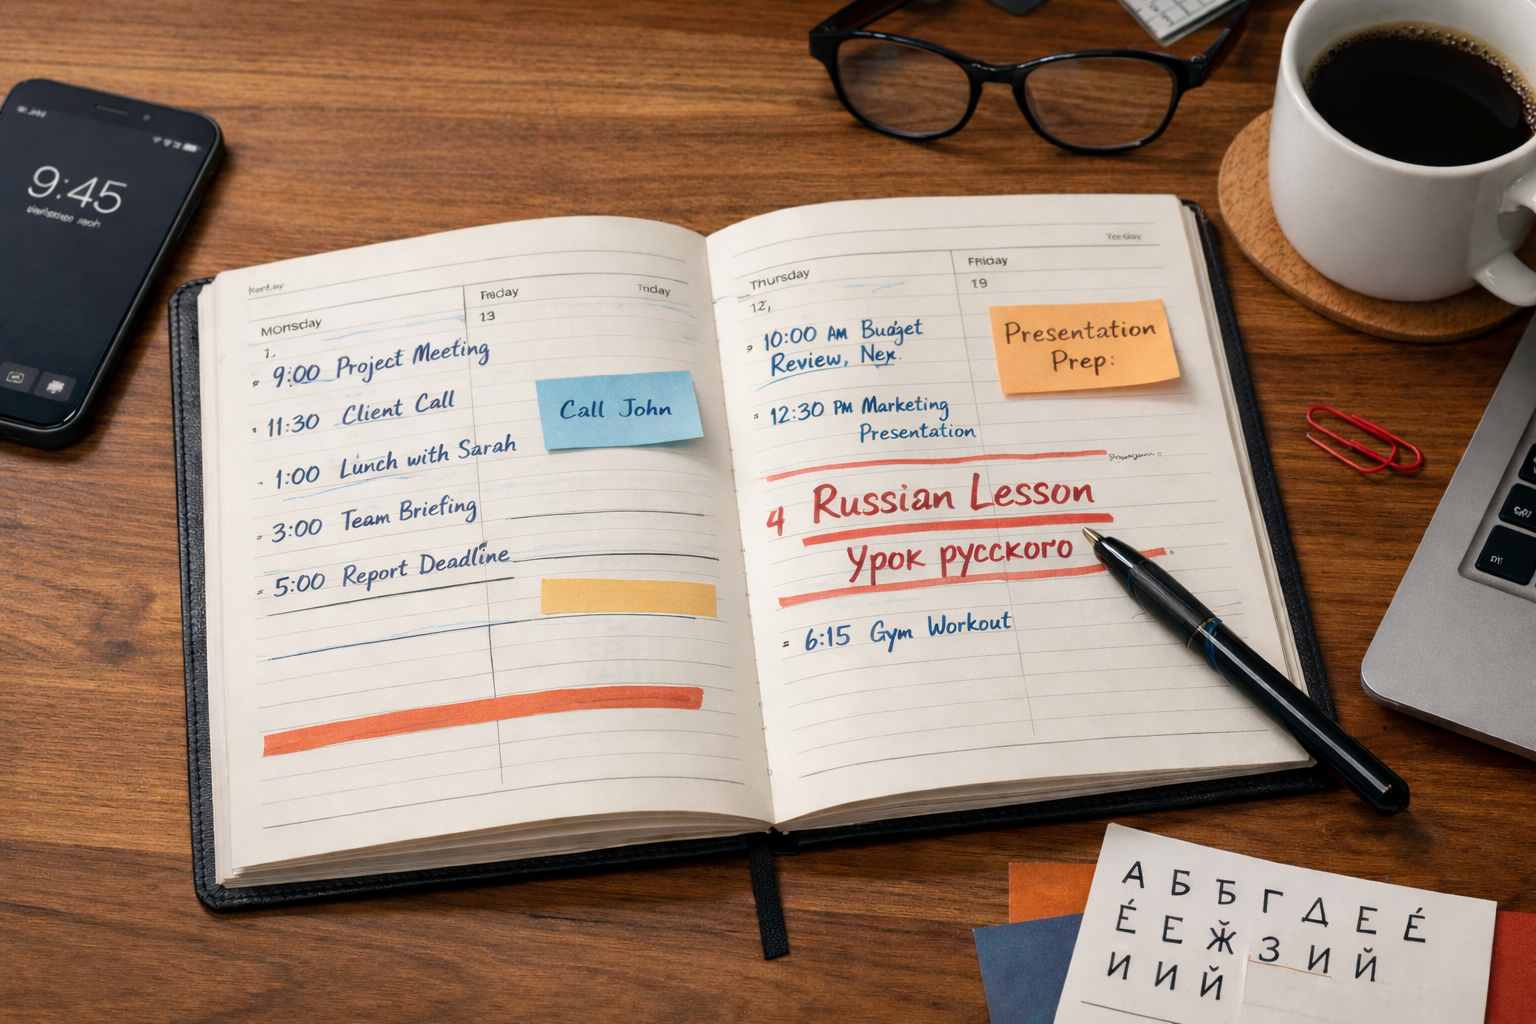 9:45
Monsday
Freday
Today
13
1.
9:00 Project Meeting
11:30 Client Call
1:00 Lunch with Sarah
3:00 Team Briefing
5:00 Report Deadline
Call John
Thursday
Friday
12,
19
10:00 AM Budget
Review, Nex.
12:30 PM Marketing
Presentation
Presentation
Prep:
4 Russian Lesson
Урок русского
6:15 Gym Workout
А Б Ѣ Г Д Е É
É Е Ӂ З И Й
И И Й